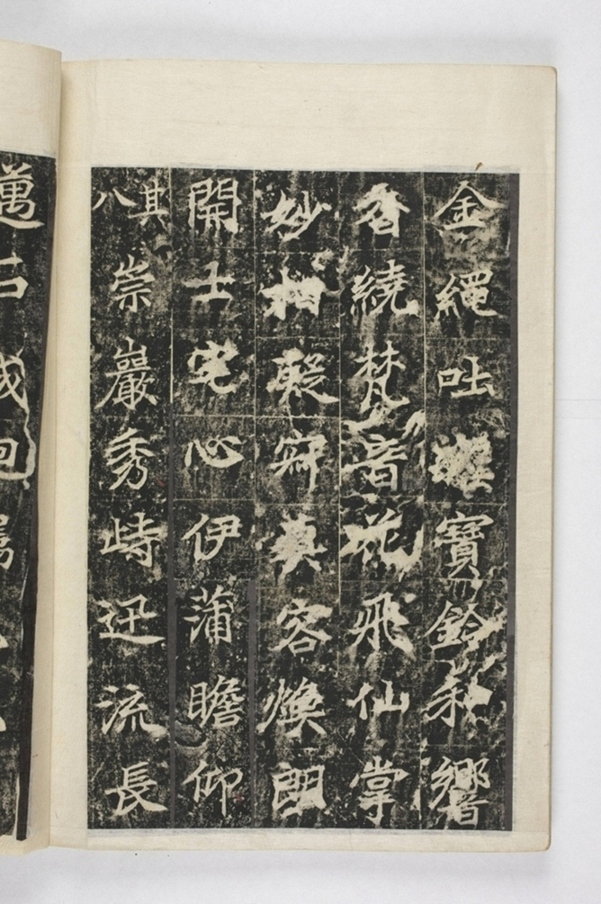 金繩吐寶鈴和響
香繞梵音花飛仙掌
妙相殿寂真容煥朗
開士宅心伊蒲瞻仰
其八崇巖秀峙迅流長
邁